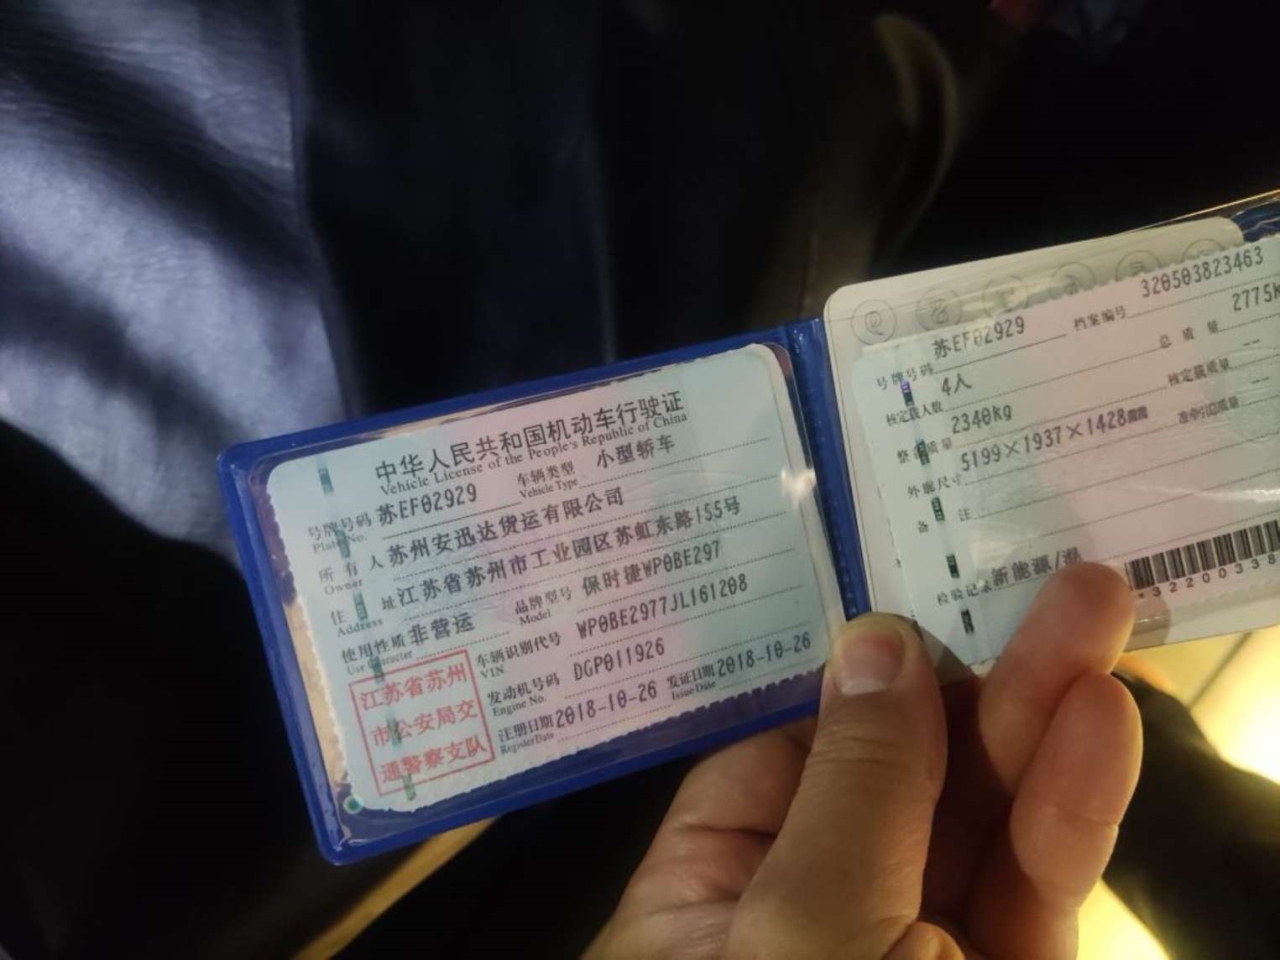 中华人民共和国机动车行驶证
Vehicle License of the People's Republic of China
号牌号码 苏EF02929 车辆类型 小型轿车
Plate No. Vehicle Type
所有人 苏州安迅达货运有限公司
Owner
住址 江苏省苏州市工业园区苏虹东路155号
Address
使用性质 非营运 品牌型号 保时捷WP0BE297
Use Character Model
车辆识别代号 WP0BE2977JL161208
VIN
发动机号码 DGP011926
Engine No.
注册日期 2018-10-26 发证日期 2018-10-26
Register Date Issue Date
江苏省苏州
市公安局交
通警察支队
号牌号码 苏EF02929 档案编号 320503823463
核定载人数 4人 总质量 2775k
整备质量 2340kg 核定载质量 --
外廓尺寸 5199×1937×1428mm 准牵引总质量 --
备注
检验记录 新能源/混
*32200338